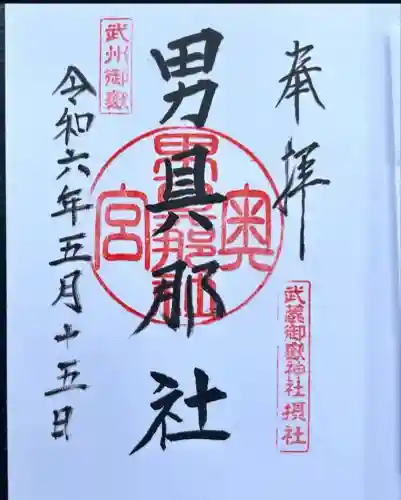 奉拝
武蔵御嶽神社 摂社
男具那社
奥
男具那社
宮
武州御嶽
令和六年五月十五日